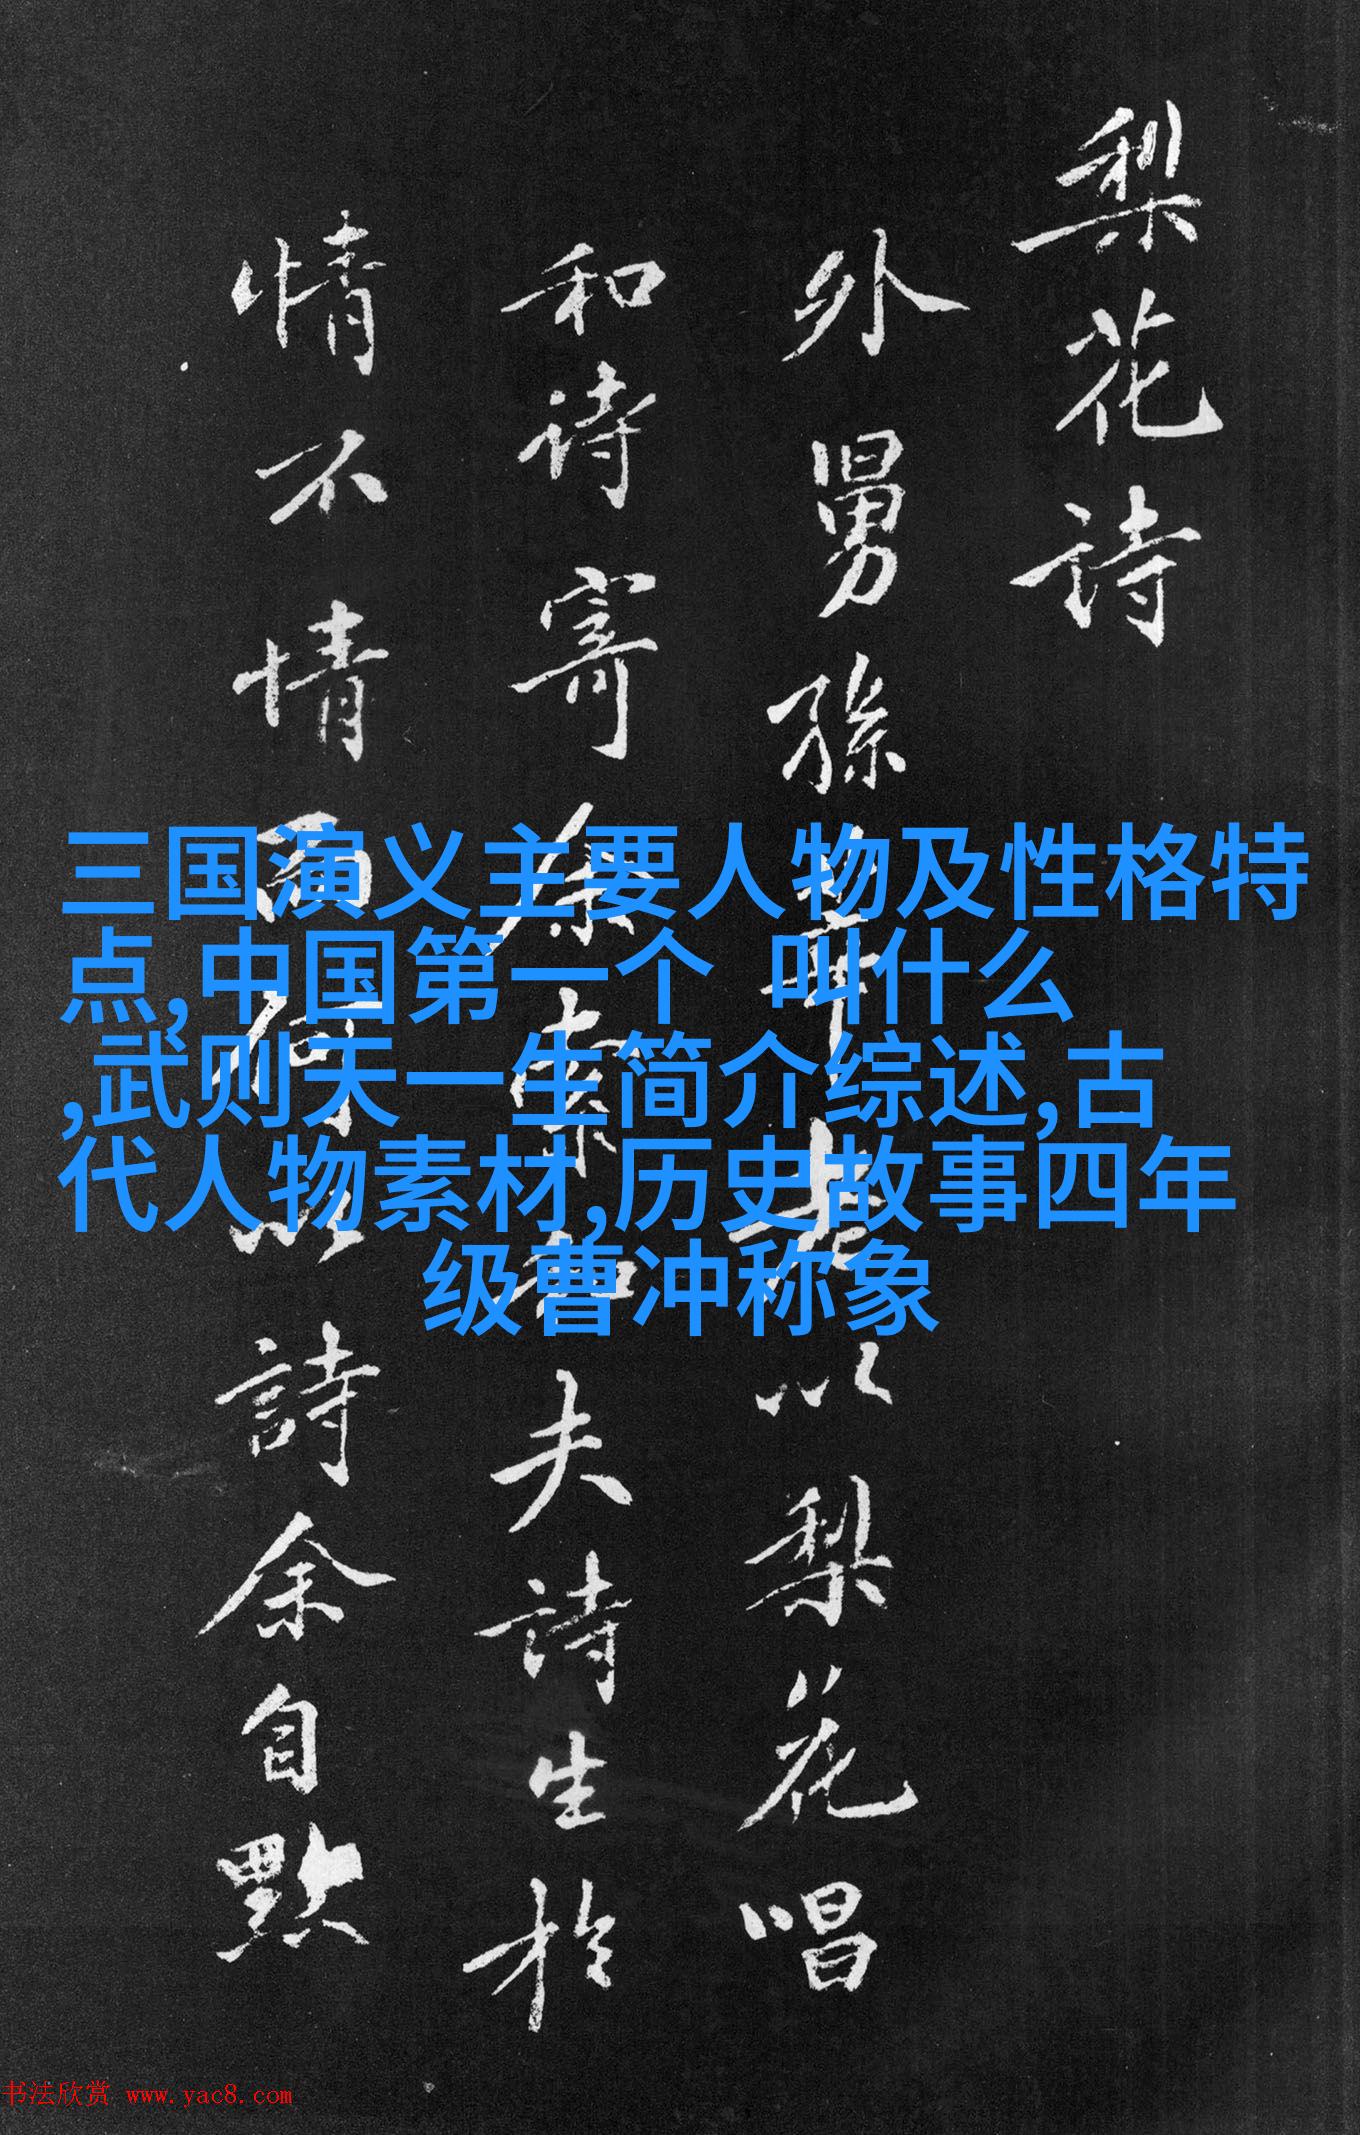 梨花詩
外舅孫莘老以梨花唱
和詩寄余索和夫詩生於
情不情而何以詩余自默
三国演义主要人物及性格特
点,中国第一个 叫什么
,武则天一生简介综述,古
代人物素材,历史故事四年
级曹冲称象
书法欣赏 www.yac8.com